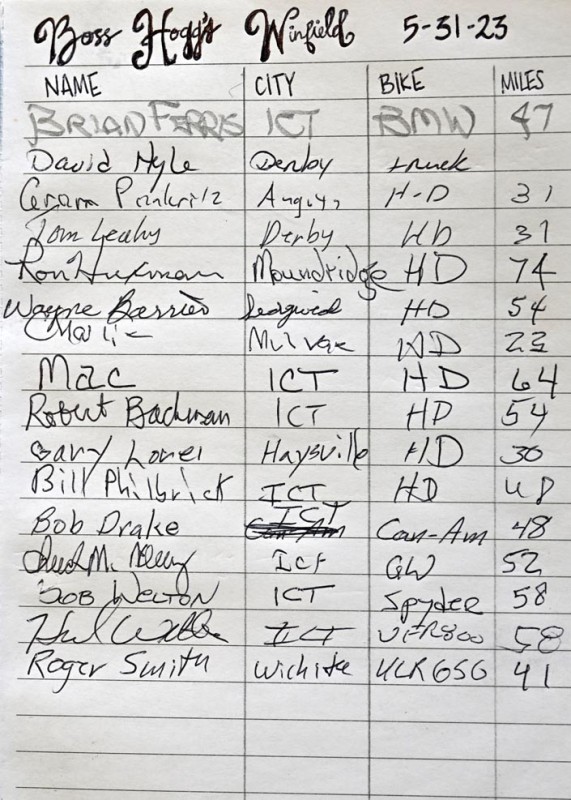 Boss Hogg's Winfield 5-31-23
NAME CITY BIKE MILES
BRIAN FERRIS ICT BMW 47
David Hyle Derby truck
H-D 31
Tom Leahy Derby HD 31
Ron Huxman Moundridge HD 74
Wayne Barrier HD 54
Mulvae HD 23
Mac ICT HD 64
Robert Backman ICT HD 54
Gary Haysville HD 30
Bill Philbrick ICT HD 48
Bob Drake ICT Can-Am 48
M. ICT GW 52
BOB WELTON ICT Spyder 58
ICT VFR800 58
Roger Smith Wichita 650 41